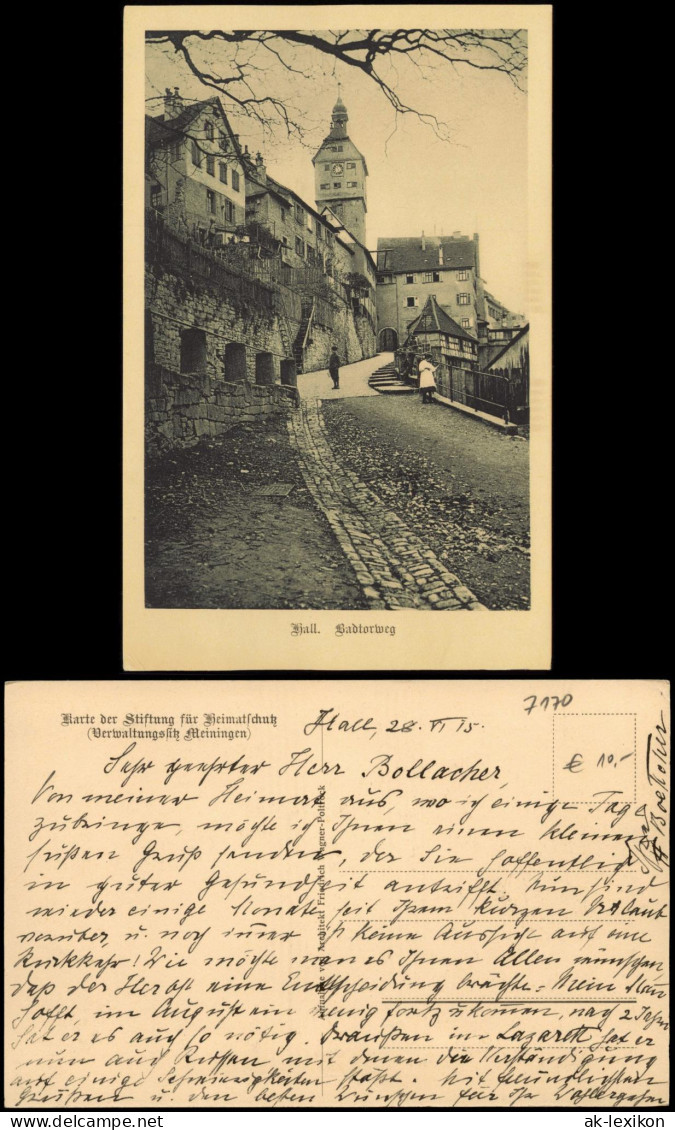 Hall. Badtorweg
Karte der Stiftung für Heimatschutz
(Verwaltungssitz Meiningen)
7170
€ 10,-
Hall, 28. VI 15.
Sehr geehrter Herr Bollacher,
Von meiner Heimat aus, wo ich einige Tage
zubringe, möchte ich Ihnen einen kleinen
süßen Gruß senden, der Sie hoffentlich
in guter Gesundheit antrifft. Nun sind
wieder einige Monate seit Ihrem kurzen Urlaub
vorüber, u. noch immer ist keine Aussicht auf eine
Rückkehr! Wie möchte man es Ihnen Allen wünschen,
daß der Herbst eine Entscheidung brächte. Mein Mann
hofft, im August ein wenig fortzukommen, nach 2 Jahren
hat er es auch so nötig. Draußen im Lazarett hat er
nun auch Russen mit denen die Verständigung
auf einige Schwierigkeiten stößt. Mit freundlichsten
Grüßen u. den besten Wünschen für Ihr Wohlergehen
Architekt Friedrich Wagner-Poltrock
ak-lexikon